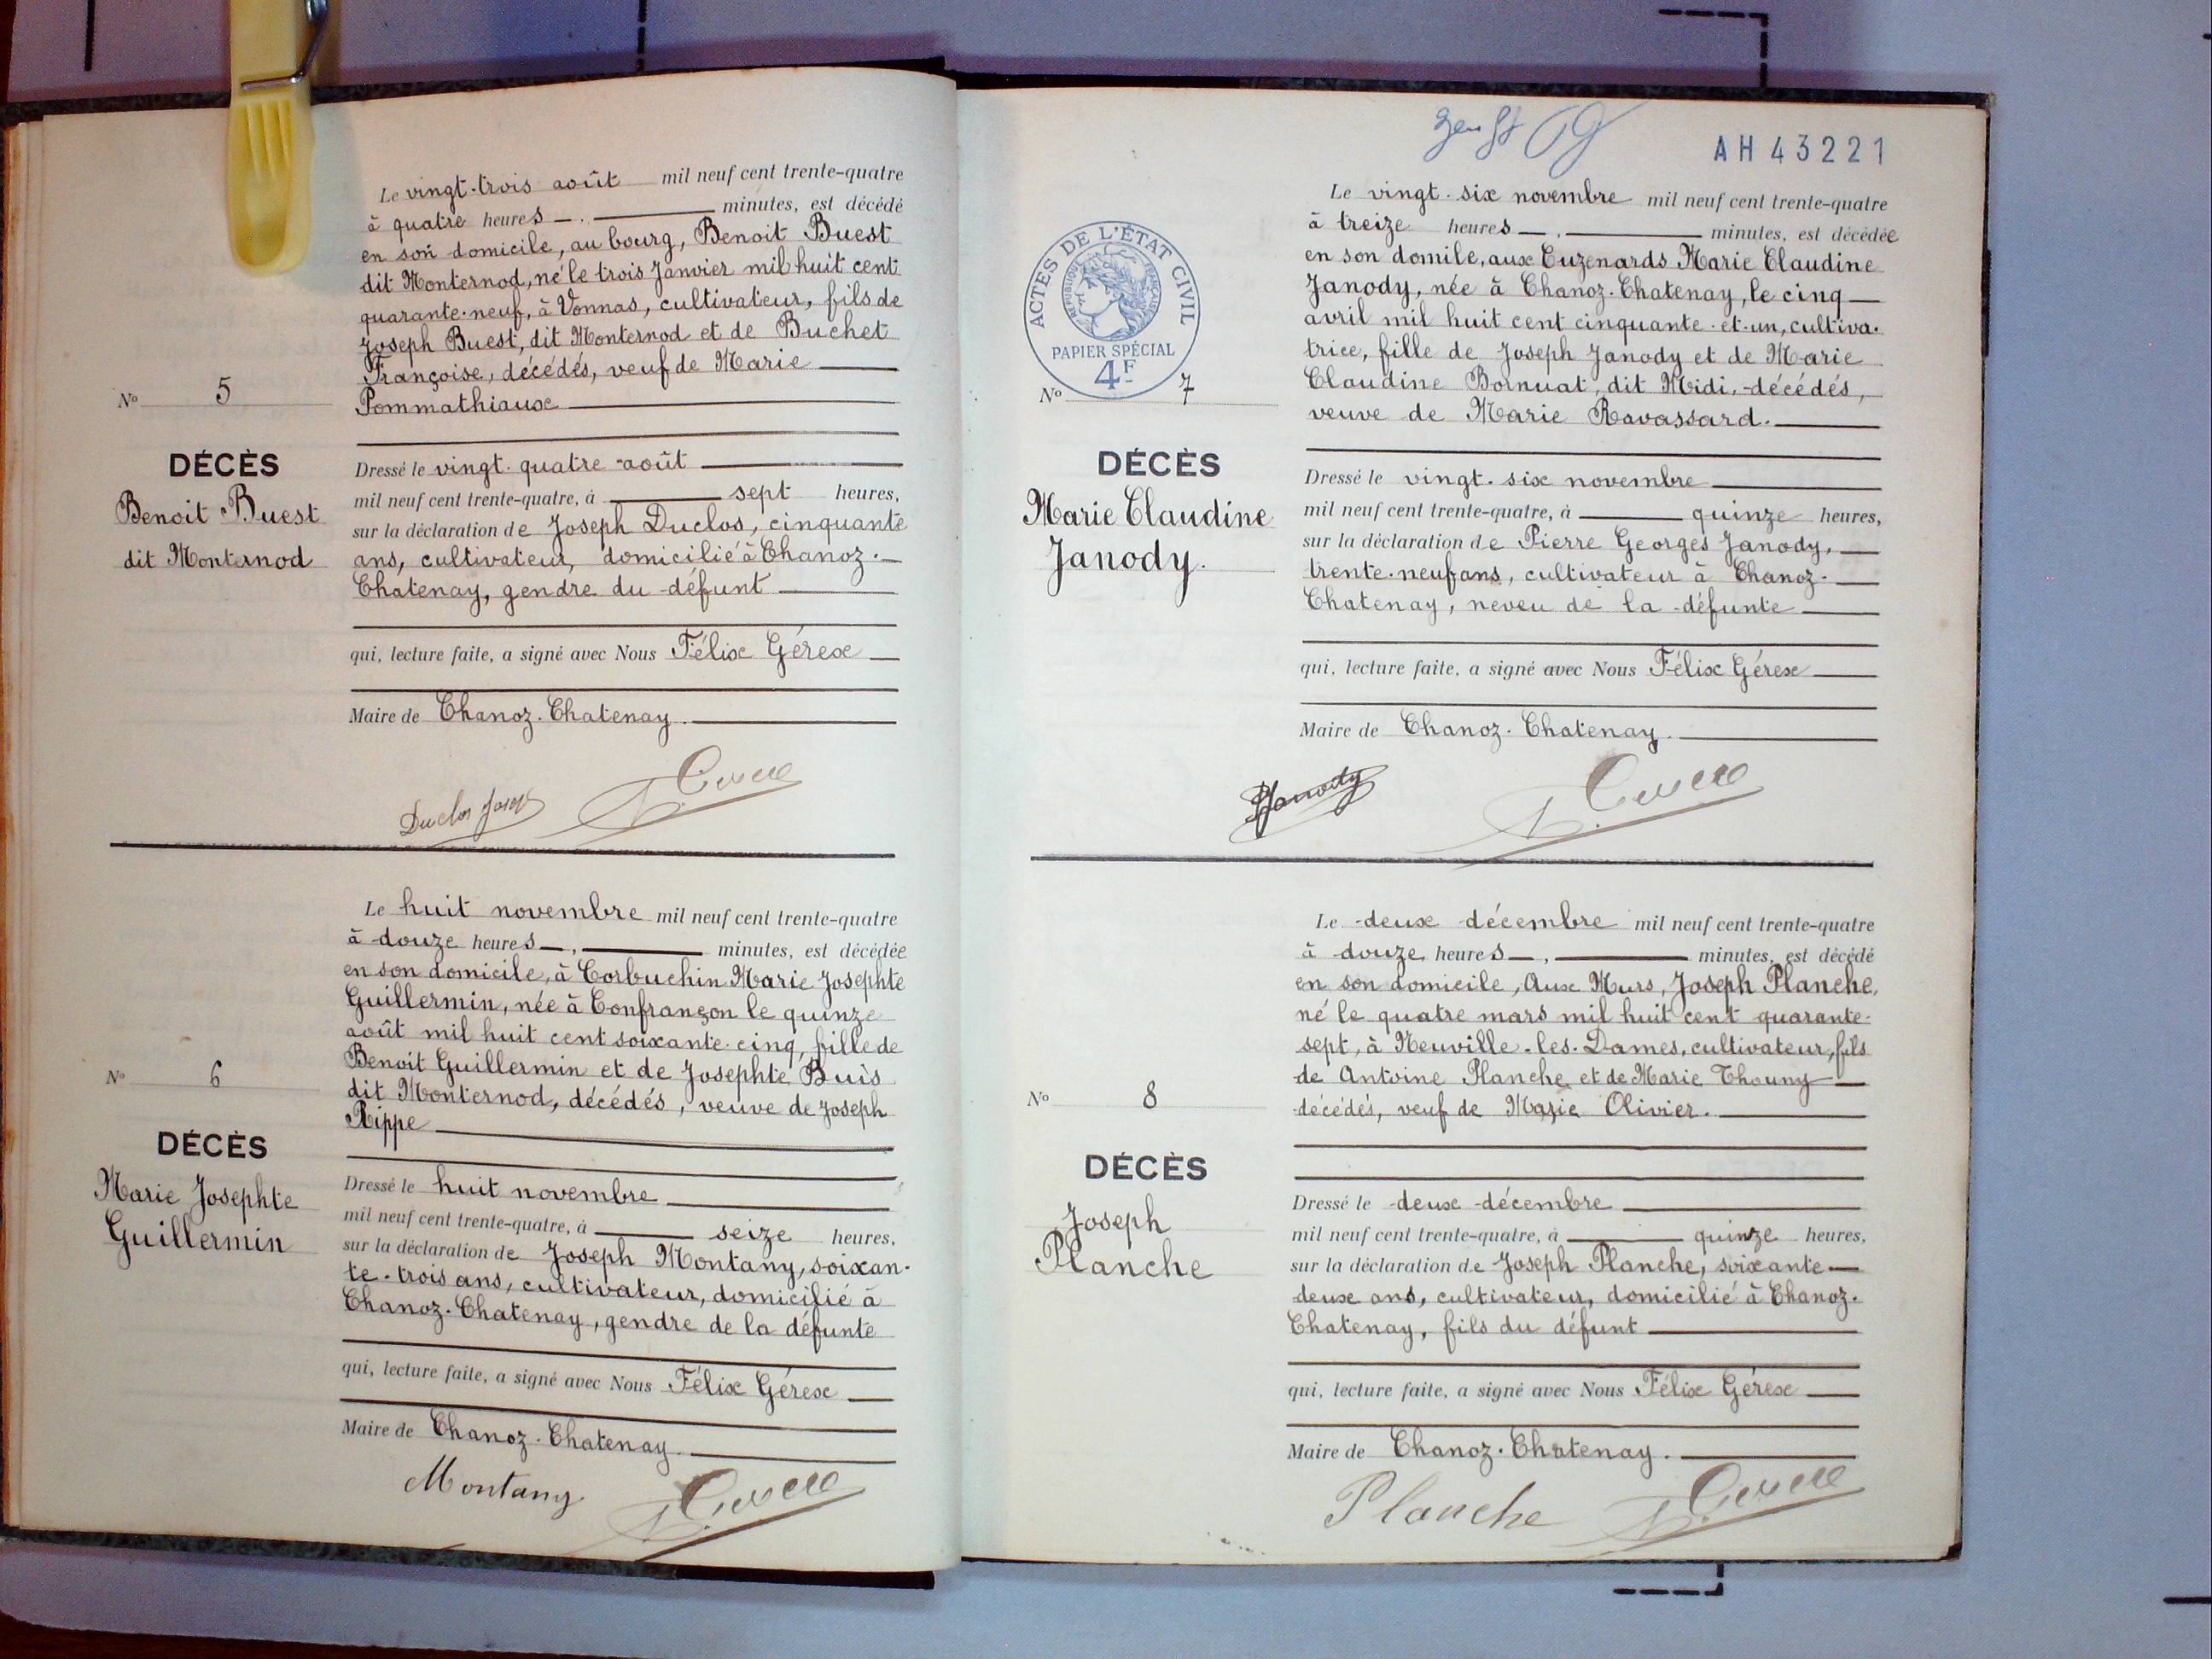 Le vingt-trois août mil neuf cent trente-quatre
à quatre heures — . — minutes, est décédé
en son domicile, au bourg, Benoit Buest
dit Monternod, né le trois Janvier mil huit cent
quarante-neuf, à Vonnas, cultivateur, fils de
Joseph Buest, dit Monternod et de Buchet
Françoise, décédés, veuf de Marie
Pommathiaux
No 5
DÉCÈS
Benoit Buest
dit Monternod
Dressé le vingt-quatre août
mil neuf cent trente-quatre, à sept heures,
sur la déclaration de Joseph Duclos, cinquante
ans, cultivateur, domicilié à Chanoz-
Chatenay, gendre du défunt
qui, lecture faite, a signé avec Nous Félix Gérex
Maire de Chanoz-Chatenay.
Duclos Joseph
Le huit novembre mil neuf cent trente-quatre
à douze heures —, — minutes, est décédée
en son domicile, à Corbuchin Marie Josephte
Guillermin, née à Confrançon le quinze
août mil huit cent soixante-cinq, fille de
Benoit Guillermin et de Josephte Buis
dit Monternod, décédés, veuve de Joseph
Rippe
No 6
DÉCÈS
Marie Josephte
Guillermin
Dressé le huit novembre
mil neuf cent trente-quatre, à seize heures,
sur la déclaration de Joseph Montany, soixan-
te-trois ans, cultivateur, domicilié à
Chanoz-Chatenay, gendre de la défunte
qui, lecture faite, a signé avec Nous Félix Gérex
Maire de Chanoz-Chatenay.
Montany
AH 43221
ACTES DE L'ÉTAT CIVIL
RÉPUBLIQUE FRANÇAISE
PAPIER SPÉCIAL
4F
Le vingt-six novembre mil neuf cent trente-quatre
à treize heures — . — minutes, est décédée
en son domile, aux Cuzenards Marie Claudine
Janody, née à Chanoz-Chatenay, le cinq
avril mil huit cent cinquante-et-un, cultiva-
trice, fille de Joseph Janody et de Marie
Claudine Bornuat, dit Midi, décédés,
veuve de Marie Ravassard.
No 7
DÉCÈS
Marie Claudine
Janody.
Dressé le vingt-six novembre
mil neuf cent trente-quatre, à quinze heures,
sur la déclaration de Pierre Georges Janody,
trente-neuf ans, cultivateur à Chanoz-
Chatenay, neveu de la défunte
qui, lecture faite, a signé avec Nous Félix Gérex
Maire de Chanoz-Chatenay.
Janody
Le deux décembre mil neuf cent trente-quatre
à douze heures —, — minutes, est décédé
en son domicile, Aux Murs, Joseph Planche,
né le quatre mars mil huit cent quarante-
sept, à Neuville-les-Dames, cultivateur, fils
de Antoine Planche et de Marie Thouny
décédés, veuf de Marie Olivier.
No 8
DÉCÈS
Joseph
Planche
Dressé le deux décembre
mil neuf cent trente-quatre, à quinze heures,
sur la déclaration de Joseph Planche, soixante-
deux ans, cultivateur, domicilié à Chanoz-
Chatenay, fils du défunt
qui, lecture faite, a signé avec Nous Félix Gérex
Maire de Chanoz-Chatenay.
Planche